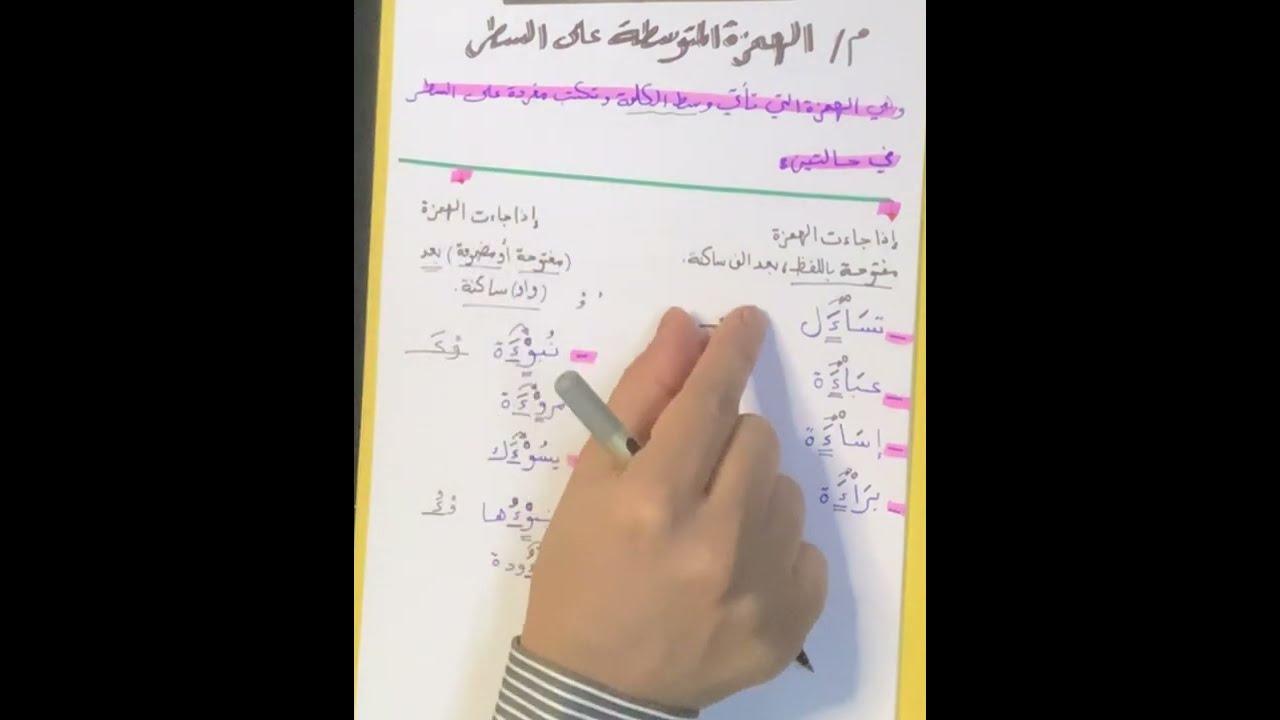 م/ الهمزة المتوسطة على السطر
وهي الهمزة التي تأتي وسط الكلمة وتكتب مفردة على السطر
في حالتين:
إذا جاءت الهمزة
مفتوحة باللفظ، بعد الف ساكنة.
تسَاْءَل
عبَاْءَة
إسَاْءَة
برَاْءَة
إذا جاءت الهمزة
(مفتوحة أو مضمومة) بعد
(واو) ساكنة.
نُبوْءَة
مروْءَة
يسُوْءَك